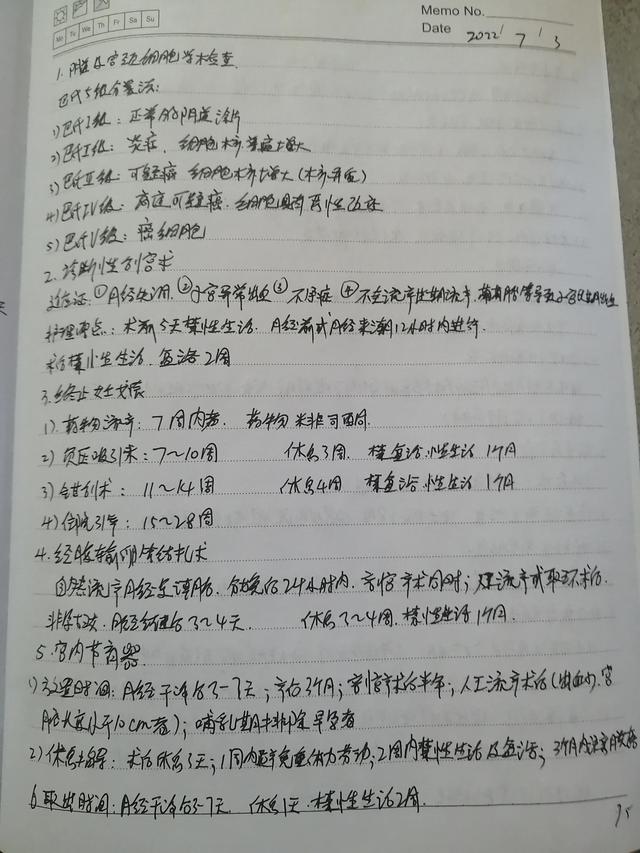 Memo No.
Mo Tu We Th Fr Sa Su
Date 2022/7/3
1. 阴道及宫颈细胞学术检查
巴氏5级分类法:
1) 巴氏I级: 正常的阴道涂片
2) 巴氏II级: 炎症, 细胞核普遍增大
3) 巴氏III级: 可疑癌 细胞核增大(核异质)
4) 巴氏IV级: 高度可疑癌. 细胞具有恶性改变
5) 巴氏V级: 癌细胞
2. 诊断性刮宫术
适应证. ①月经失调. ②子宫异常出血 ③不孕症 ④不全流产
护理要点: 术前5天禁性生活. 月经前或月经来潮12小时内进行.
术后禁性生活. 盆浴2周
3. 终止妊娠
1). 药物流产: 7周内者. 药物 米非司酮
2) 负压吸引术: 7~10周 休息3周. 禁盆浴. 性生活 1个月
3) 钳刮术: 11~14周 休息4周 禁盆浴. 性生活 1个月
4) 引产: 15~28周
4. 经腹输卵管结扎术
自然流产月经复潮后. 分娩后24小时内. 剖宫产术同时; 人流产或取环术后.
非孕妇. 月经结束后3~4天. 休息3~4周. 禁性生活1个月.
5. 宫内节育器
1) 放置时间: 月经干净后3-7天; 产后3个月; 剖宫产术后半年; 人工流产术后(出血少. 宫
腔长度小于10cm者); 哺乳期排除早孕者
2) 休息 : 术后休息3天; 1周内避免重体力劳动; 2周内禁性生活及盆浴; 3个月内
6. 取出时间: 月经干净后3-7天. 休息1天. 禁性生活2周.